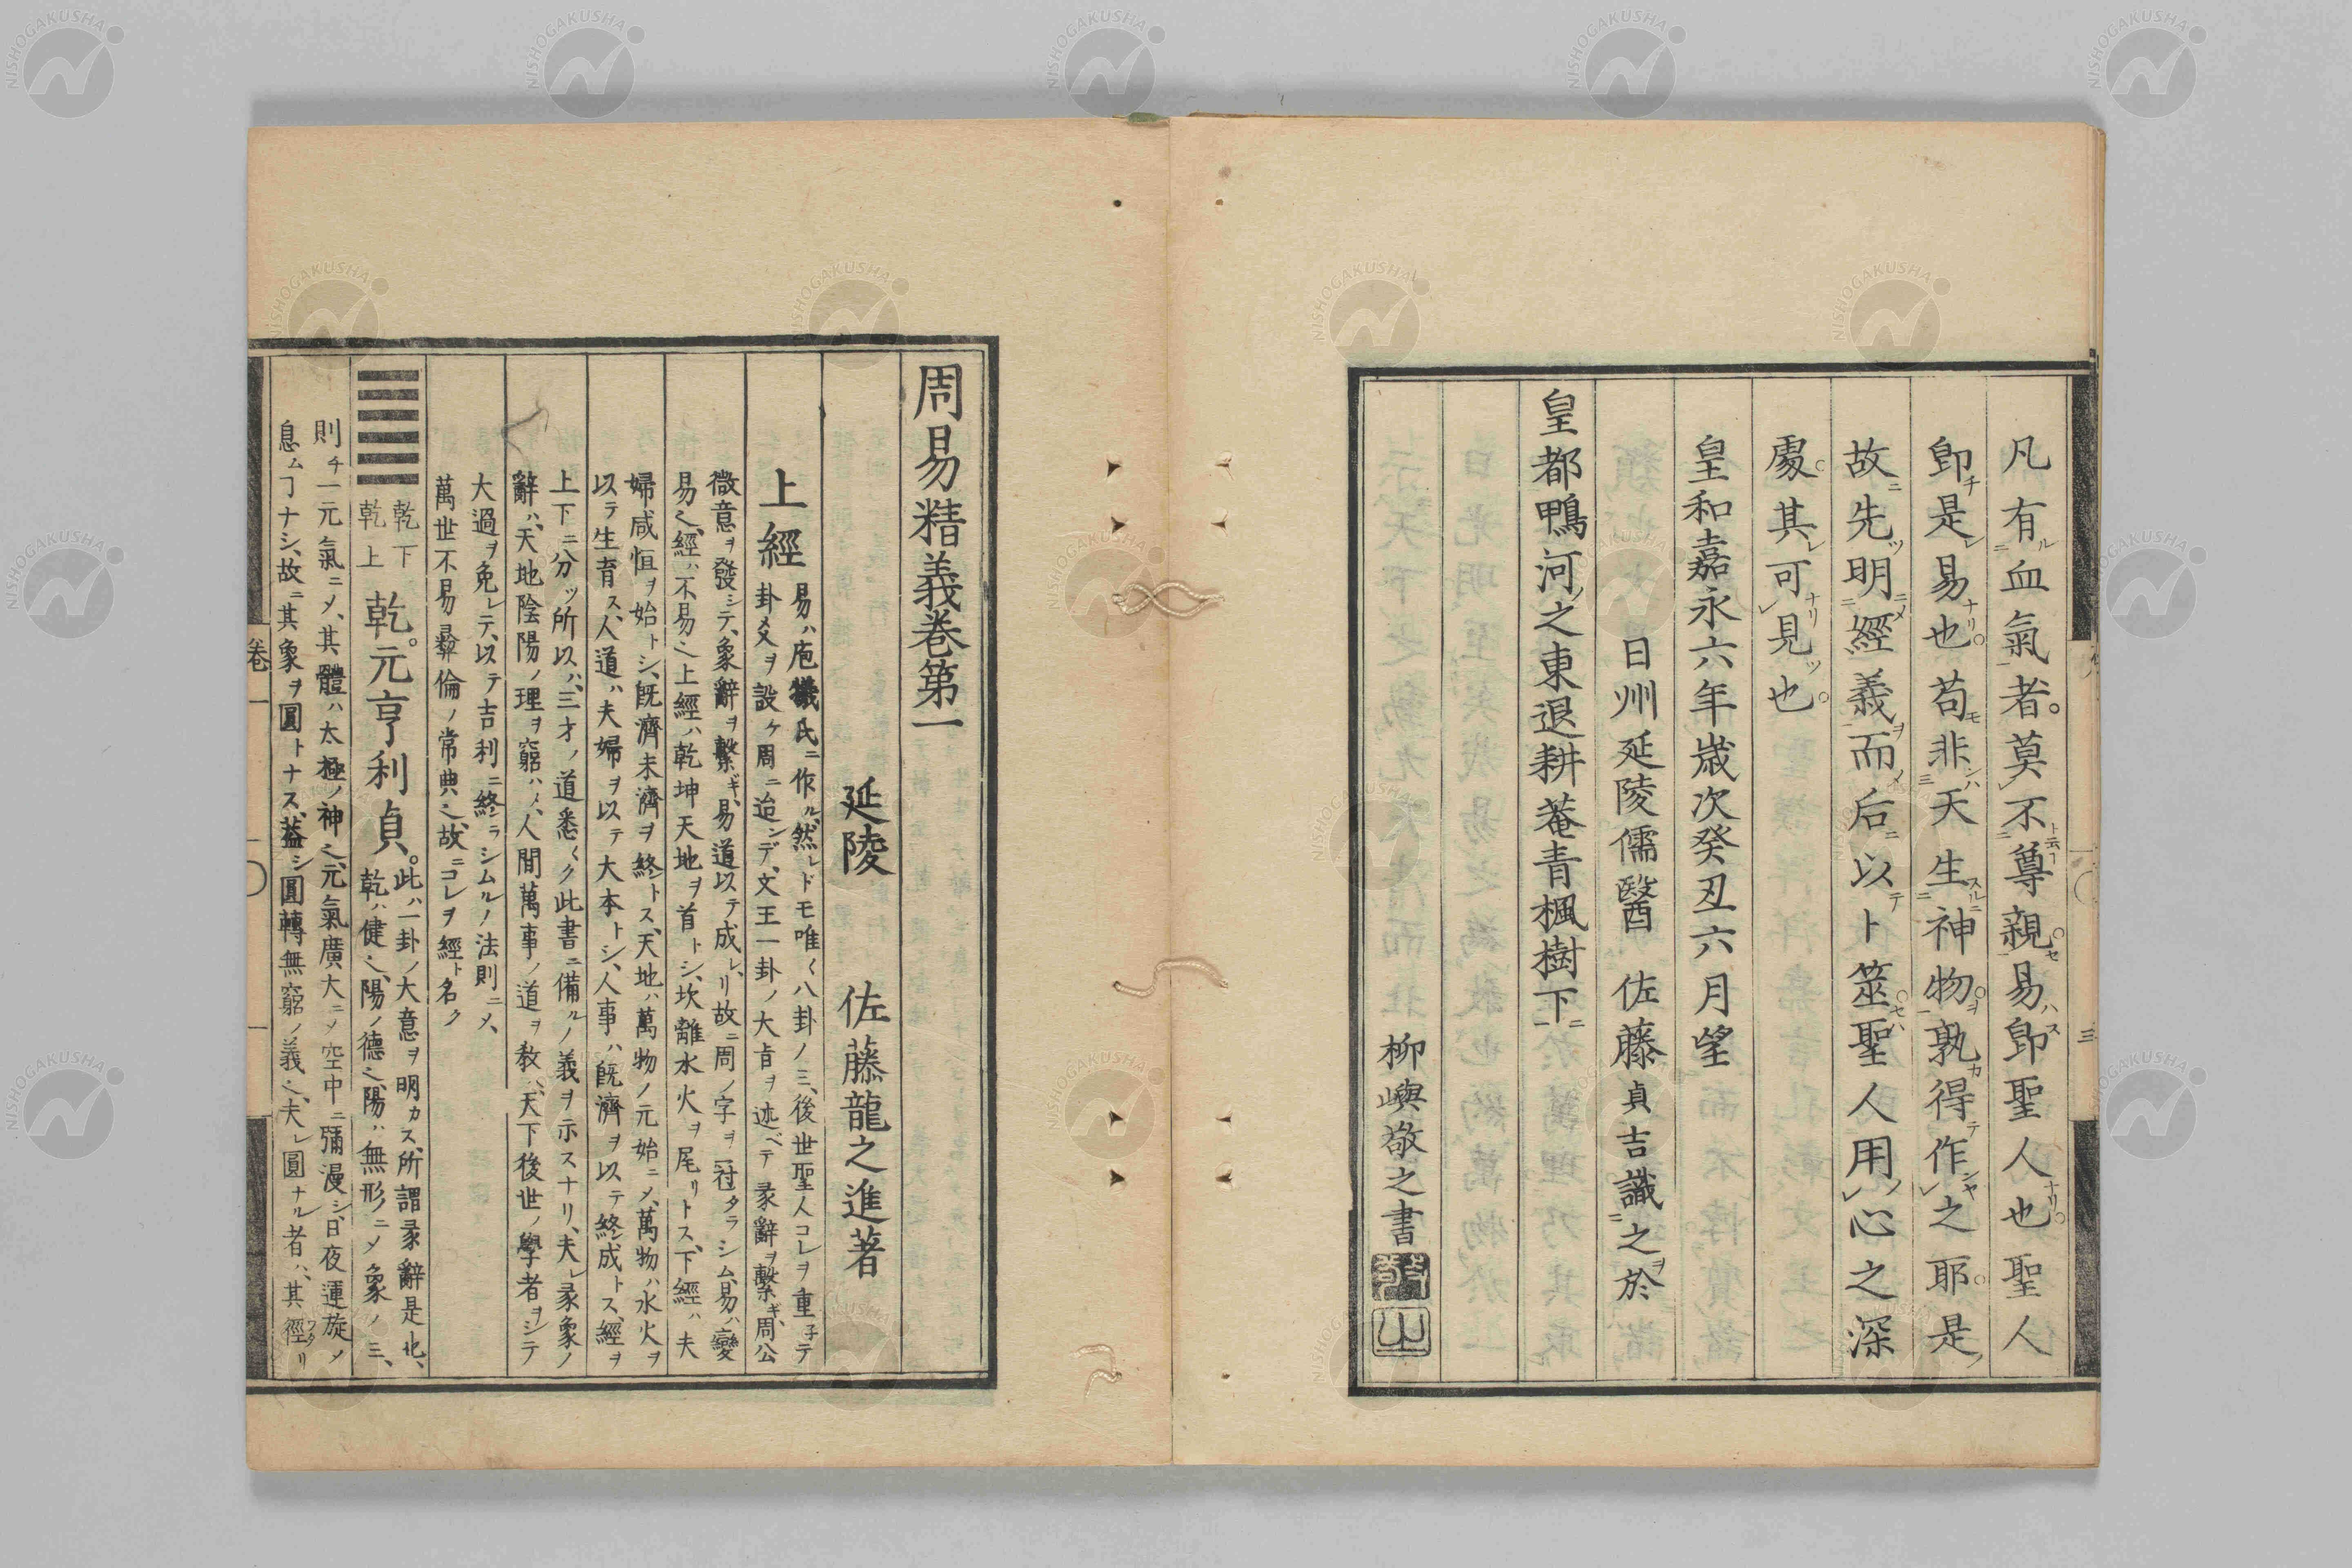 凡有ル二血氣一者。莫レ不ト云ヿ二尊親セ一。易ハ卽ス聖人ナリ也。聖人
卽チ是レ易ナリ也。苟モ非シハ三天生スルニ二神物ヲ一。孰カ得テ作シヤレ之耶。是ノ
故ニ先ツ明ニメ二經義ヲ一而ノ后ニ以テ卜筮セハ。聖人用ノレ心之深
處。其レ可ナリレ見ツ也。
皇和嘉永六年歲次癸丑六月望
日州延陵儒醫 佐藤貞吉識ニ之ヲ於
皇都鴨河ノ之東退耕菴青楓樹下ニ一
柳嶼敬之書
敬
之
三
周易精義卷第一
延陵 佐藤龍之進著
上經
易ハ庖犧氏ニ作ル、然レドモ唯〱八卦ノミ、後世聖人コレヲ重子テ
卦爻ヲ設ケ周ニ迨ンデ、文王一卦ノ大旨ヲ迹ベテ彖辭ヲ繫ギ、周公
微意ヲ發シテ、象辭ヲ繫ギ、易道以テ成レリ、故ニ周ノ字ヲ冠タラシム、易ハ變
易也、經ハ不易也、上經ハ乾坤天地ヲ首トシ、坎離水火ヲ尾リトス、下經ハ夫
婦咸恒ヲ始トシ、旣濟未濟ヲ終トス、天地ハ萬物ノ元始ニメ、萬物ハ水火ヲ
以テ生育ス、人道ハ夫婦ヲ以テ大本トシ、人事ハ旣濟ヲ以テ終成トス、經ヲ
上下ニ分ツ所以ハ、三才ノ道悉〱ク此書ニ備ルノ義ヲ示スナリ、夫レ彖象ノ
辭ハ、天地陰陽ノ理ヲ窮ハメ、人間萬事ノ道ヲ教ヘ、天下後世ノ學者ヲシテ
大過ヲ免レテ、以テ吉利ニ終ラシムルノ法則ニメ、
萬世不易彝倫ノ常典也、故ニコレヲ經ト名ク
乾下
乾上
乾。元亨利貞。
此ハ一卦ノ大意ヲ明カス、所謂彖辭是也、
乾ハ健也、陽ノ德也、陽ハ無形ニメ象ノミ、
則チ一元氣ニメ、其體ハ太極ノ神也、元氣廣大ニメ空中ニ彌漫シ、日夜運旋メ
息ムヿナシ、故ニ其象ヲ圓トナス、葢シ圓轉無窮ノ義也、夫レ圓ナル者ハ、其徑ワタリ
卷一
一